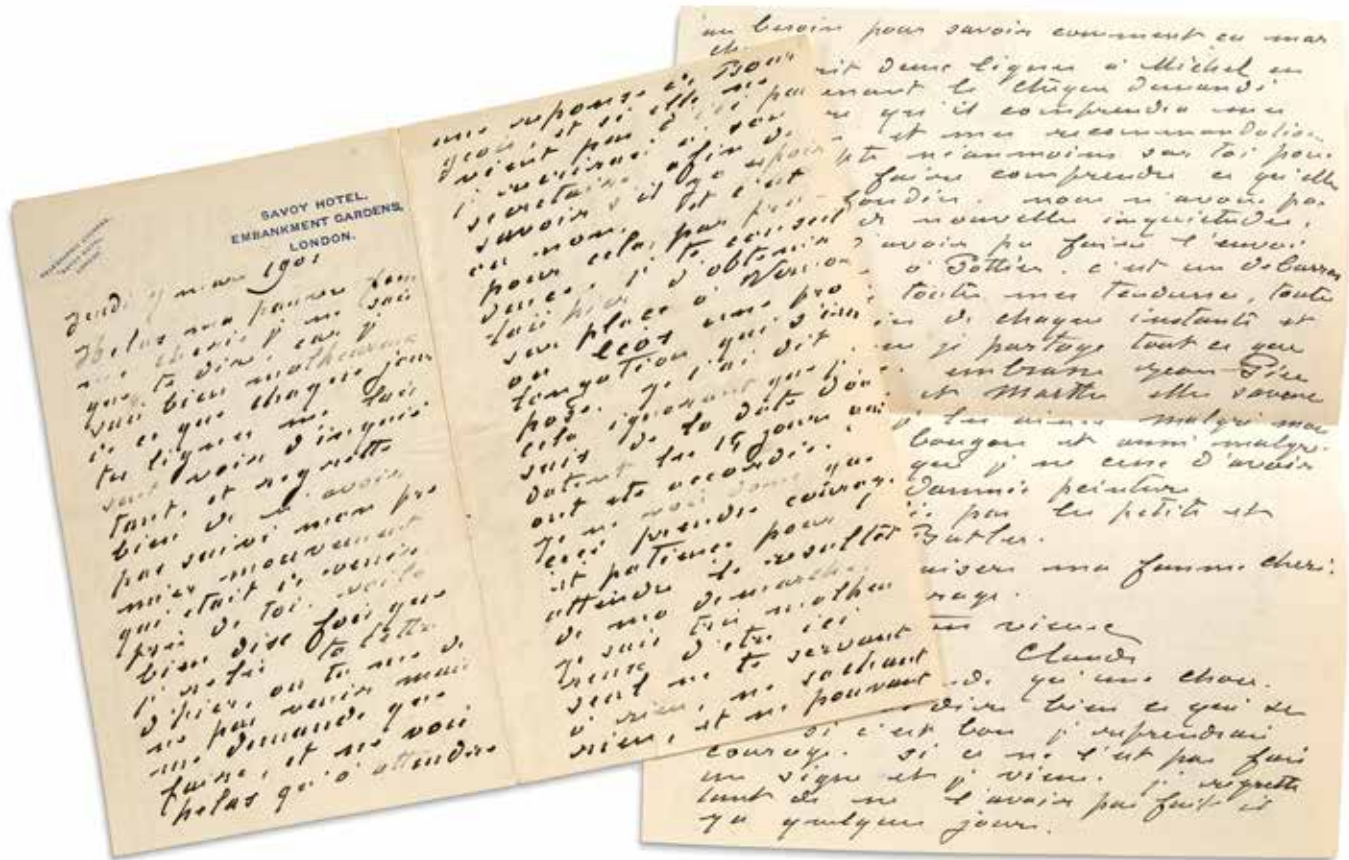 SAVOY HOTEL,
EMBANKMENT GARDENS,
LONDON.
Jeudi 7 mars 1901
Helas ma pauvre fem
me cherie je ne sais
que te dire, car je
suis bien malheureux
de ce que chaque jour
tes lignes me lais
sent voir d'inquie
tant, et regrette
bien de n'avoir
pas suivi mon pre
mier mouvement
qui était de venir
près de toi. voila
bien dix fois que
je relis ta lettre
d'hier, ou tu me dis
ne pas venir mais
me demande que
faire, et ne vois
helas qu'a attendre
une reponse de Bour
geois, et si elle ne
vient pas d'ici peu
j'ecrirai a son
secretaire afin de
savoir s'il y a espoir
ou non. et c'est
pour cela, par pru
dence, je te conseil
lais hier d'obtenir
sur place a Vernon
ou 
longation qui s'im
pose. je t'ai dit
cela ignorant que je
suis de la date d'ou
datent les 15 jours qui
ont ete accordés.
Je ne vois donc que
ceci prendre courage
et patience pour
attendre le resultat
de ma demarche.
Je suis très malheu
reux d'etre ici
seul ne te servant
a rien, ne sachant
rien, et ne pouvant
au besoin pour savoir comment ca mar
che.
rit deux lignes a Michel en
nant le chèque demandé
re qu'il comprendra mes
et mes recommandations
pte néanmoins sur toi pour
faire comprendre ce qu'elle
nous n'avons pas
de nouvelles inquietudes.
d'avoir pu faire l'envoi
a Pottier. c'est un debarras
toutes mes tendresses, toutes
de chaque instants et
je partage tout ce que
embrasse Jean-Pierre
et Marthe elle savent
je les aime malgre mon
bougon et aussi malgre
que je ne cesse d'avoir
damnée peinture
pas les petits et
Butler.
aisers ma femme cherie
rage.
ton vieux
Claude
de qu'une chose.
dire bien ce qui se
si c'est bon je reprendrai
courage. si ce ne l'est pas fais
un signe et je viens. je regrette
tant de ne l'avoir pas fait il
y a quelques jours.